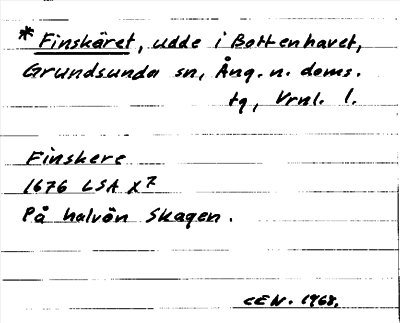 *Finskäret, udde i Bottenhavet,
Grundsunda sn, Ång. n. doms.
tg, Vrnl. l.
Finskere
1676 LSA X7
På halvön Skagen.
CEN. 1968.